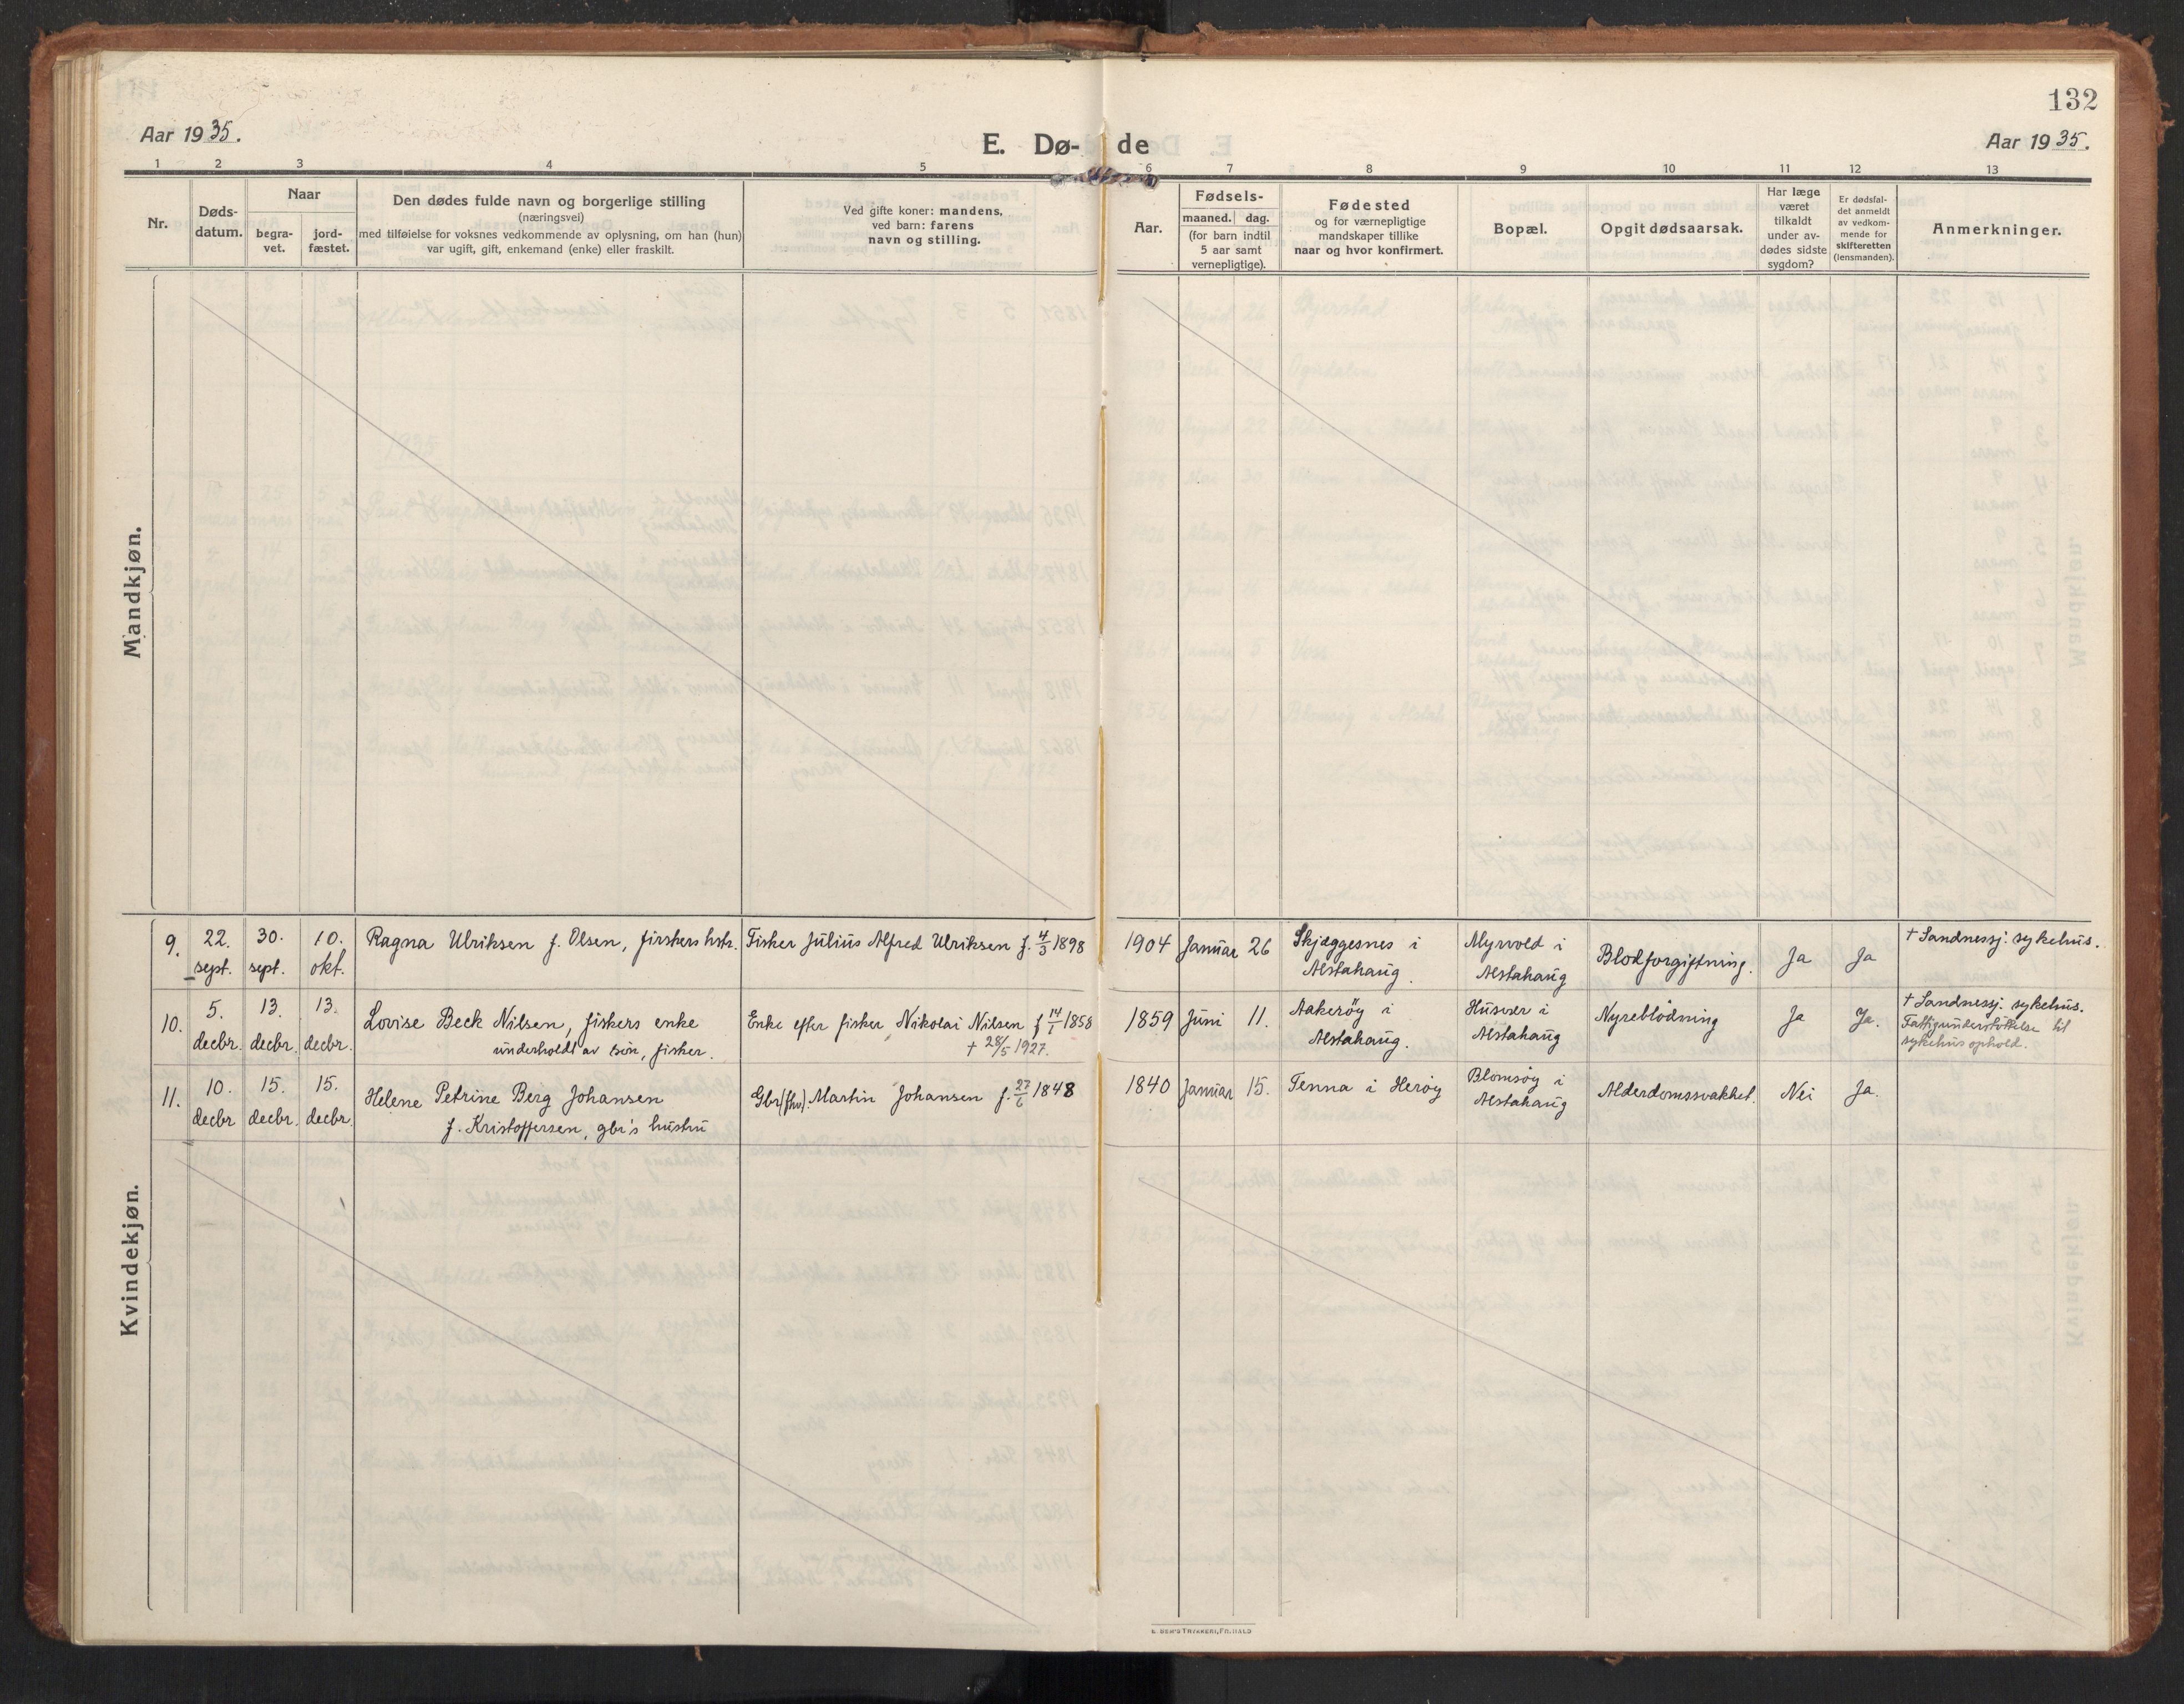 132
Aar 1935.
E. Dø- de
Aar 1935.
1 2 3 4 5 6 7 8 9 10 11 12 13
Nr.
Døds-
datum.
Naar
begra-
vet.
jord-
fæstet.
Den dødes fulde navn og borgerlige stilling
(næringsvei)
med tilføielse for voksnes vedkommende av oplysning, om han (hun)
var ugift, gift, enkemand (enke) eller fraskilt.
Ved gifte koner: mandens,
ved barn: farens
navn og stilling.
Aar.
Fødsels-
maaned. dag.
(for barn indtil
5 aar samt
vernepligtige).
Fødested
og for værnepligtige
mandskaper tillike
naar og hvor konfirmert.
Bopæl.
Opgit dødsaarsak.
Har læge
været
tilkaldt
under av-
dødes sidste
sygdom?
Er dødsfal-
det anmeldt
av vedkom-
mende for
skifteretten
(lensmanden).
Anmerkninger.
Mandkjøn.
Kvindekjøn.
9.
22.
sept.
30.
sept.
10.
okt.
Ragna Ulriksen f. Olsen, firskers hstr.
Fisker Julius Alfred Ulriksen f. 4/3 1898
1904 Januar 26
Skjæggesnes i
Alstahaug.
Myrvold i
Alstahaug
Blodforgiftning.
Ja
Ja
† Sandnessj. sykehus.
10.
5.
decbr.
13.
decbr.
13.
decbr.
Lovise Beck Nilsen, fiskers enke
underholdt av søn, fisker.
Enke efter fisker Nikolai Nilsen f 14/1 1858
† 28/5 1927.
1859 Juni 11.
Aakerøy i
Alstahaug.
Husvær i
Alstahaug
Nyreblødning
Ja
Ja.
† Sandnessj. sykehus.
Fattigunderstøttelse til
sykehusophold.
11.
10.
decbr
15.
decbr.
15.
decbr.
Helene Petrine Berg Johansen
f. Kristoffersen, gbr's hustru
Gbr (fhv). Martin Johansen f. 27/6 1848
1840 Januar 15.
Tenna i Herøy
Blomsøy i
Alstahaug
Alderdomssvakhet.
Nei
Ja.